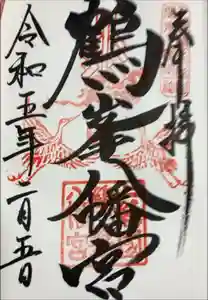 奉拝
鶴峯八幡宮
令和五年二月五日